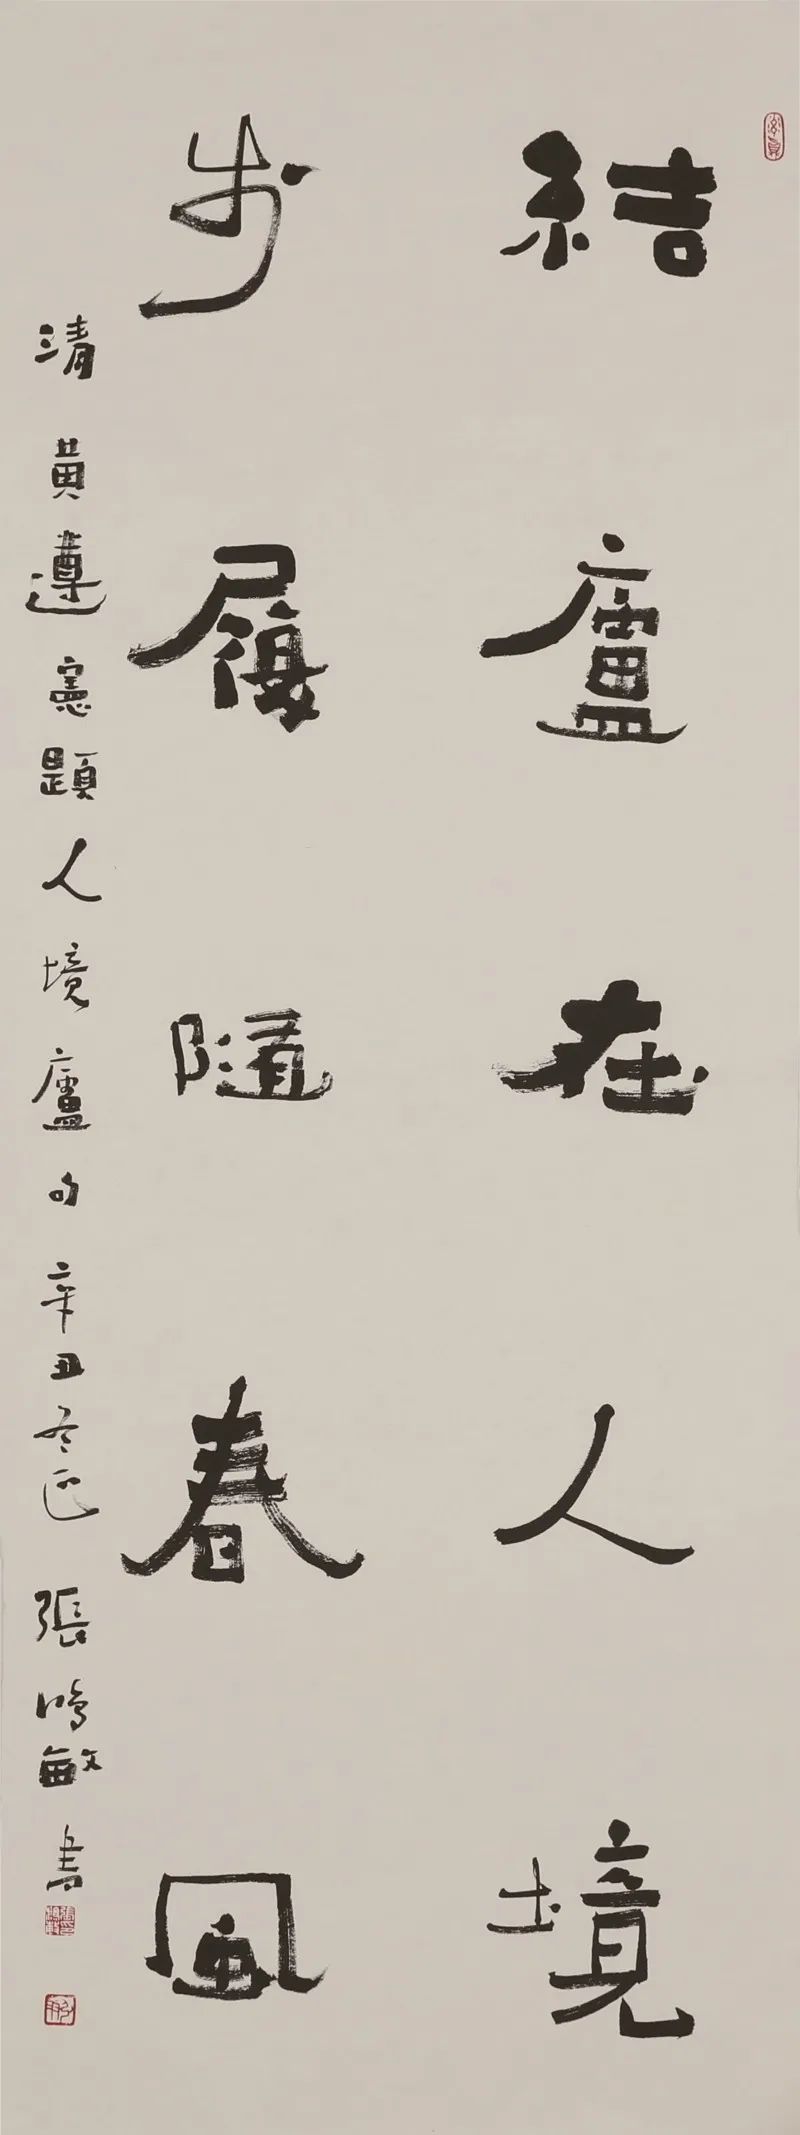 結廬在人境
步履隨春風
清黃遵憲題人境廬句辛丑冬張鴻敏書